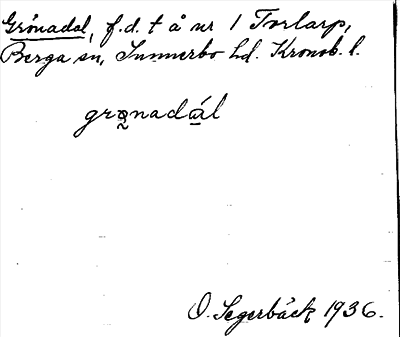 Grönadal, f.d. t å nr 1 Torlarp,
Berga sn, Sunnerbo hd. Kronob. l.
grønadál
O. Segerbäck 1936.